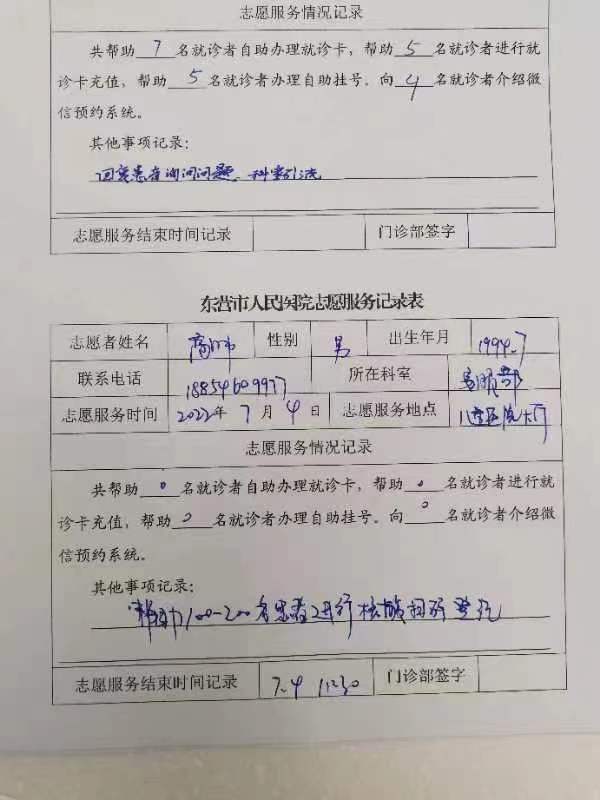 志愿服务情况记录
共帮助 7 名就诊者自助办理就诊卡，帮助 5 名就诊者进行就
诊卡充值，帮助 5 名就诊者办理自助挂号。向 4 名就诊者介绍微
信预约系统。
其他事项记录：
回答患者询问问题、科室引流
志愿服务结束时间记录 门诊部签字
东营市人民医院志愿服务记录表
志愿者姓名 性别 男 出生年月 1994.7
联系电话 18854609977 所在科室
志愿服务时间 2022年 7 月 4 日 志愿服务地点 医院大厅
志愿服务情况记录
共帮助 0 名就诊者自助办理就诊卡，帮助 0 名就诊者进行就
诊卡充值，帮助 0 名就诊者办理自助挂号。向 0 名就诊者介绍微
信预约系统。
其他事项记录：
帮助100-200名患者进行核酸扫码登记
志愿服务结束时间记录 7.4 11:30 门诊部签字